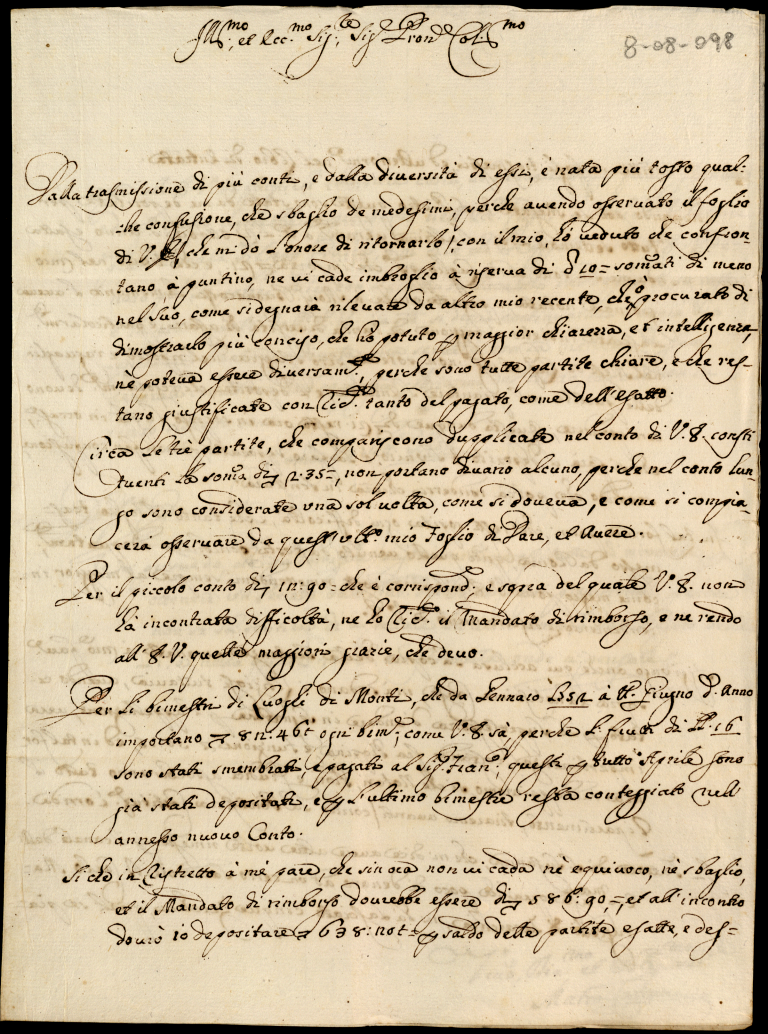 Ill.mo et Ecc.mo Sig.re Sig.r Pron.e Col.mo
8-08-098
Dalla trasmissione di più conti, e dalla diversità di essi, è nata più tosto qual=
che confusione, che sbaglio de medesimi, perche avendo osservato il foglio
di V.S., che mi dà l'onore di ritornarlo, con il mio, hò veduto che confron=
tano à puntino, ne vi cade imbroglio à riserva di 10= somati di meno
nel suo, come si degnarà rilevare da altro mio recente, che hò procurato di
dimostrarlo più conciso, che hò potuto p maggior chiarezza, et intelligenza,
nè poteva essere diversam.te, perche sono tutte partite chiare, e che res=
tano giustificate con Ric.e tanto del pagato, come dell'esatto.
Circa le trè partite, che compariscono dupplicate nel conto di V.S. consti
tuenti la som.a di 2.35=, non portano divario alcuno, perche nel conto lun=
go sono considerate una sol volta, come si doveva, e come si compia=
cerà osservare da quest'ult.o mio Foglio di Dare, et Avere.
Per il piccolo conto di 1n:90= che è corrispond.e, e sopra del quale V.S. non
hà incontrata difficoltà, ne hò Ric.e il Mandato di rimborso, e ne rendo
all'S.V. quelle maggiori grazie, che devo.
Per li bimestri di Luoghi di Monti, che da Gennaro à tt.o Giugno d.o Anno
importano 8n:46 ogni bim.e, come V.S. sà, perche li frutti di LL. 16
sono stati smembrati, e pagati al Sig.r Fran.o, questi p tutto Aprile sono
già stati depositati, e p l'ultimo bimestre resta conteggiato nell'
annesso nuovo Conto.
Si che in Ristretto à mè pare, che sin ora non vi cada nè equivoco, nè sbaglio,
et il Mandato di rimborso dovrebbe essere di 586:90=, et all'incontro
dovrò io depositare 638: p saldo delle partite esatte, e des=